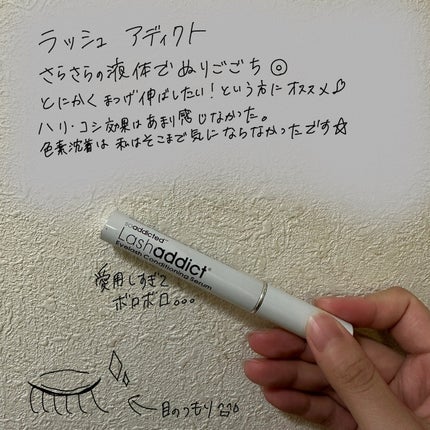 ラッシュ アディクト
さらさらの液体でぬりごごち◎
とにかく まつげ伸ばしたい！という方にオススメ♡
ハリ・コシ効果はあまり感じなかった。
色素沈着は 私はそこまで気にならなかったです☆
soaddicted™
Lashaddict®
Eyelash Conditioning Serum
愛用しすぎて
ボロボロ。。。
目のつもり